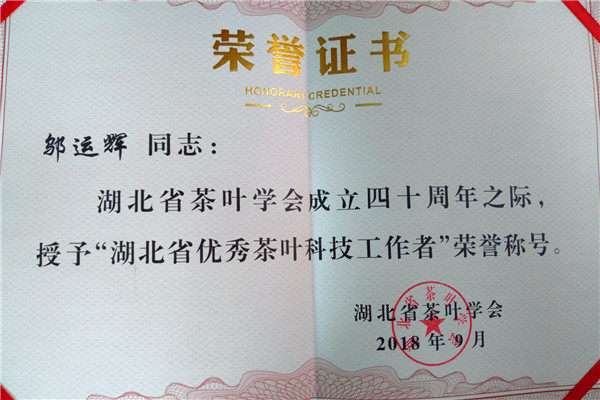 荣誉证书
HONORARY CREDENTIAL
邬运辉 同志：
湖北省茶叶学会成立四十周年之际，
授予“湖北省优秀茶叶科技工作者”荣誉称号。
湖北省茶叶学会
2018年9月
湖北省茶叶学会